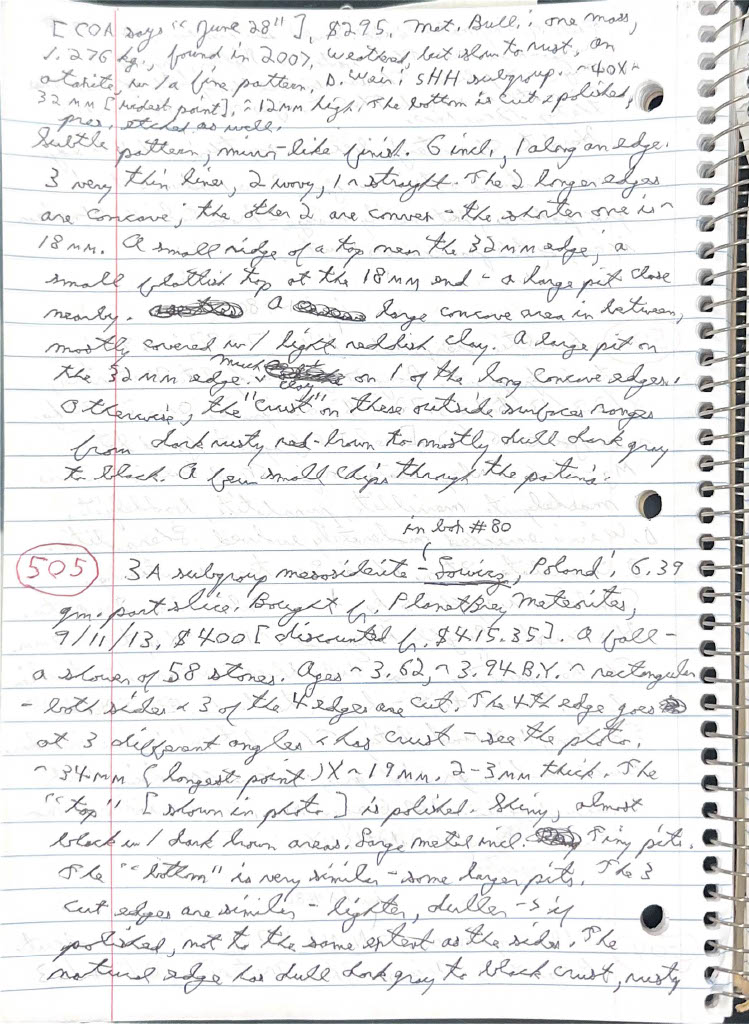 [COA says "June 28"], $295. Met. Bull.: one mass,
1.276 kg., found in 2007, weathered, but slow to rust, an
ataxite, w/ a fine pattern, D. Weir: sHH subgroup. ~40X~
32 mm [widest point], ~12mm high. The bottom is cut & polished,
pres. etched as well.
Subtle pattern, mirror-like finish. 6 incl., 1 along an edge.
3 very thin lines, 2 wavy, 1 ~ straight. The 2 longer edges
are concave; the other 2 are convex - the shorter one is ~
18 mm. A small ridge of a top near the 32 mm edge, a
small flattish top at the 18 mm end - a large pit close
nearby. A large concave area in between,
mostly covered w/ light reddish clay. A large pit on
the 32 mm edge. much clay on 1 of the long concave edges.
Otherwise, the "crust" on these outside surfaces ranges
from dark rusty red-brown to mostly dull dark gray
to black. A few small chips through the patina.
in box #80
505 3A subgroup mesosiderite - Lowicz, Poland; 6.39
gm. part slice. Bought fr. PlanetBrey Meteorites,
9/11/13, $400 [discounted fr. $415.35]. A fall -
a shower of 58 stones. Ages ~ 3.62, ~ 3.94 B.Y. ~ rectangular
- both sides & 3 of the 4 edges are cut. The 4th edge goes
at 3 different angles & has crust - see the photo.
~ 34mm (longest point) X ~ 19 mm. 2-3 mm thick. The
"top" [shown in photo] is polished. Shiny, almost
black w/ dark brown areas. Large metal incl. Tiny pits.
The "bottom" is very similar - some larger pits. The 3
cut edges are similar - lighter, duller - if
polished, not to the same extent as the sides. The
natural edge has dull dark gray to black crust, rusty